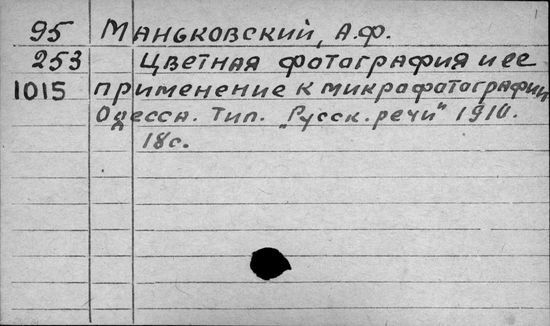 95 Маньковский, А.Ф.
253 Цветная фотография и ее
1015 применение к микрофотографии
Одесса. Тип. „Русск. речи" 1910.
18с.